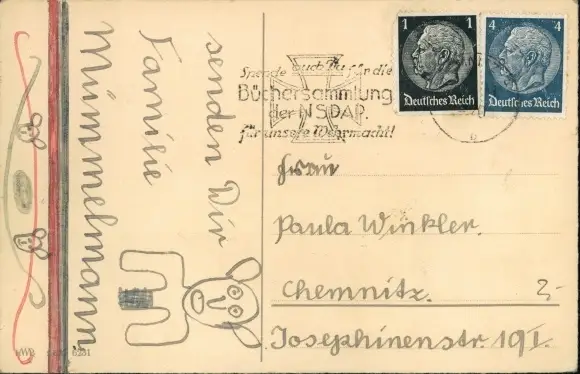 senden Wir
Familie
Mümmelmann
Spende auch Du für die
Büchersammlung
der NSDAP.
für unsere Wehrmacht!
1 1
Deutsches Reich
4 4
Deutsches Reich
Frau
Paula Winkler.
Chemnitz.
Josephinenstr. 19I.
6231